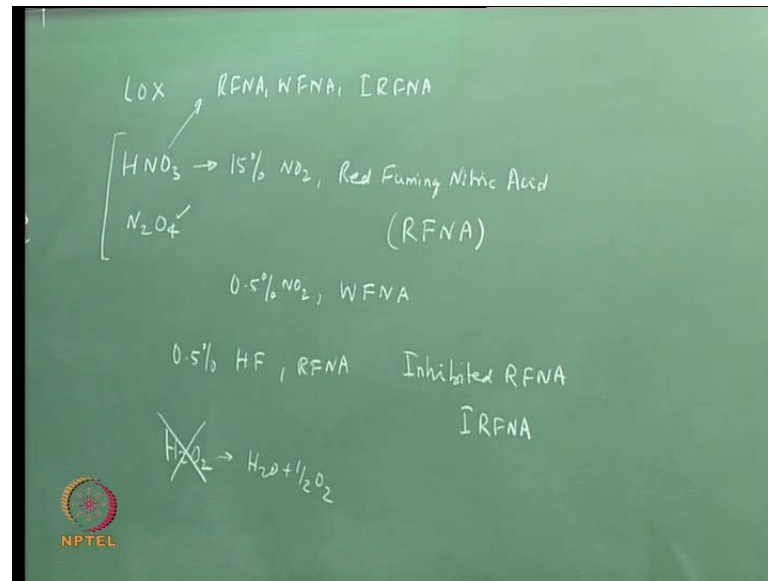 LOX RFNA, WFNA, IRFNA
HNO₃ → 15% NO₂, Red Fuming Nitric Acid
N₂O₄ ✓
(RFNA)
0.5% NO₂, WFNA
0.5% HF, RFNA Inhibited RFNA
IRFNA
H₂O₂ → H₂O + 1/2 O₂
NPTEL